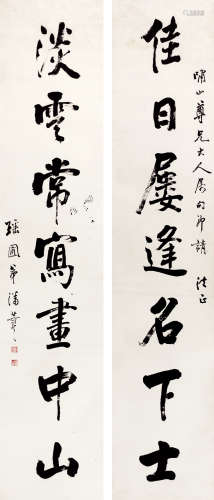 佳日屡逢名下士
啸山尊兄大人属句即請 法正
淡雲常寫畫中山
瑶圃弟潘